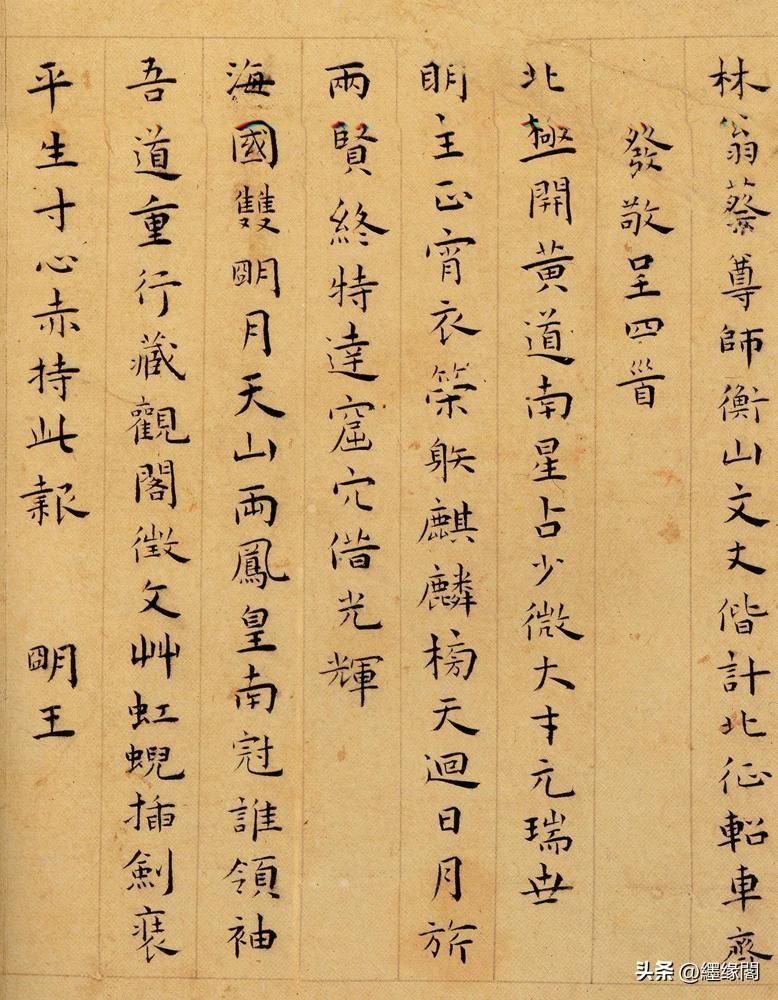 林翁蔡尊師衡山文丈偕計北征軺車齊
發敬呈四首
北極開黃道南星占少微大才元瑞世
明主正宵衣策躲麒麟榜天迴日月旂
兩賢終特達窟穴偕光輝
海國雙明月天山兩鳳皇南冠誰領袖
吾道重行藏觀閣徵文艸虹蜺插劍裝
平生寸心赤持此報 明王
头条 @纆缘閣